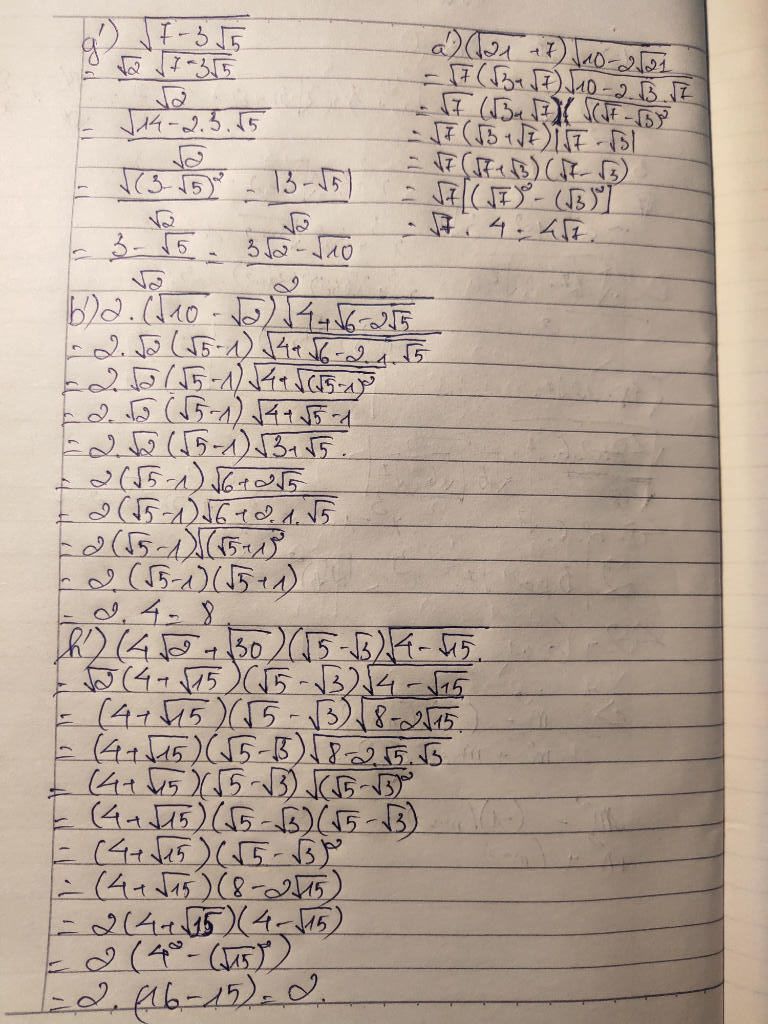 g') √(7-3√5)
= (√2 √(7-3√5))/√2
= √(14-2.3.√5)/√2
= √((3-√5)²)/√2 = |3-√5|/√2
= (3-√5)/√2 = (3√2-√10)/2
a') (√21 +7)√(10-2√21)
= √7(√3+√7)√(10-2.√3.√7)
= √7 (√3+√7) √((√7-√3)²)
= √7(√3+√7)|√7-√3|
= √7(√7+√3)(√7-√3)
= √7[(√7)²-(√3)²]
= √7. 4 = 4√7.
b') 2.(√10-√2)√(4+√(6-2√5))
= 2.√2(√5-1)√(4+√(6-2.1.√5))
= 2.√2(√5-1)√(4+√((√5-1)²))
= 2.√2(√5-1)√(4+√5-1)
= 2.√2(√5-1)√(3+√5).
= 2(√5-1)√(6+2√5)
= 2(√5-1)√(6+2.1.√5)
= 2(√5-1)√((√5+1)²)
= 2.(√5-1)(√5+1)
= 2. 4 = 8.
h') (4√2+√30)(√5-√3)√(4-√15).
= √2(4+√15)(√5-√3)√(4-√15)
= (4+√15)(√5-√3)√(8-2√15)
= (4+√15)(√5-√3)√(8-2.√5.√3)
= (4+√15)(√5-√3)√((√5-√3)²)
= (4+√15)(√5-√3)(√5-√3)
= (4+√15)(√5-√3)²
= (4+√15)(8-2√15)
= 2(4+√15)(4-√15)
= 2(4²-(√15)²)
= 2.(16-15) = 2.